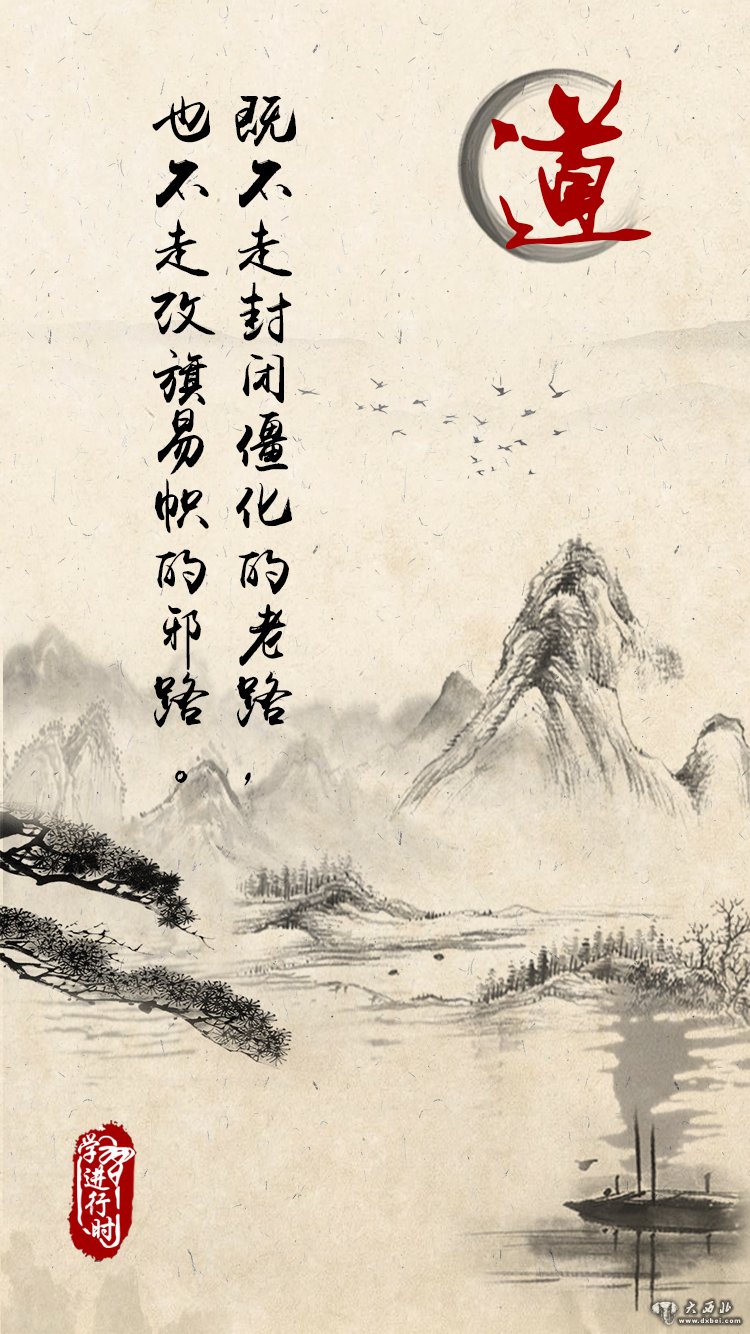 道
既不走封闭僵化的老路，
也不走改旗易帜的邪路。
学习进行时
大西北
www.dxbei.com